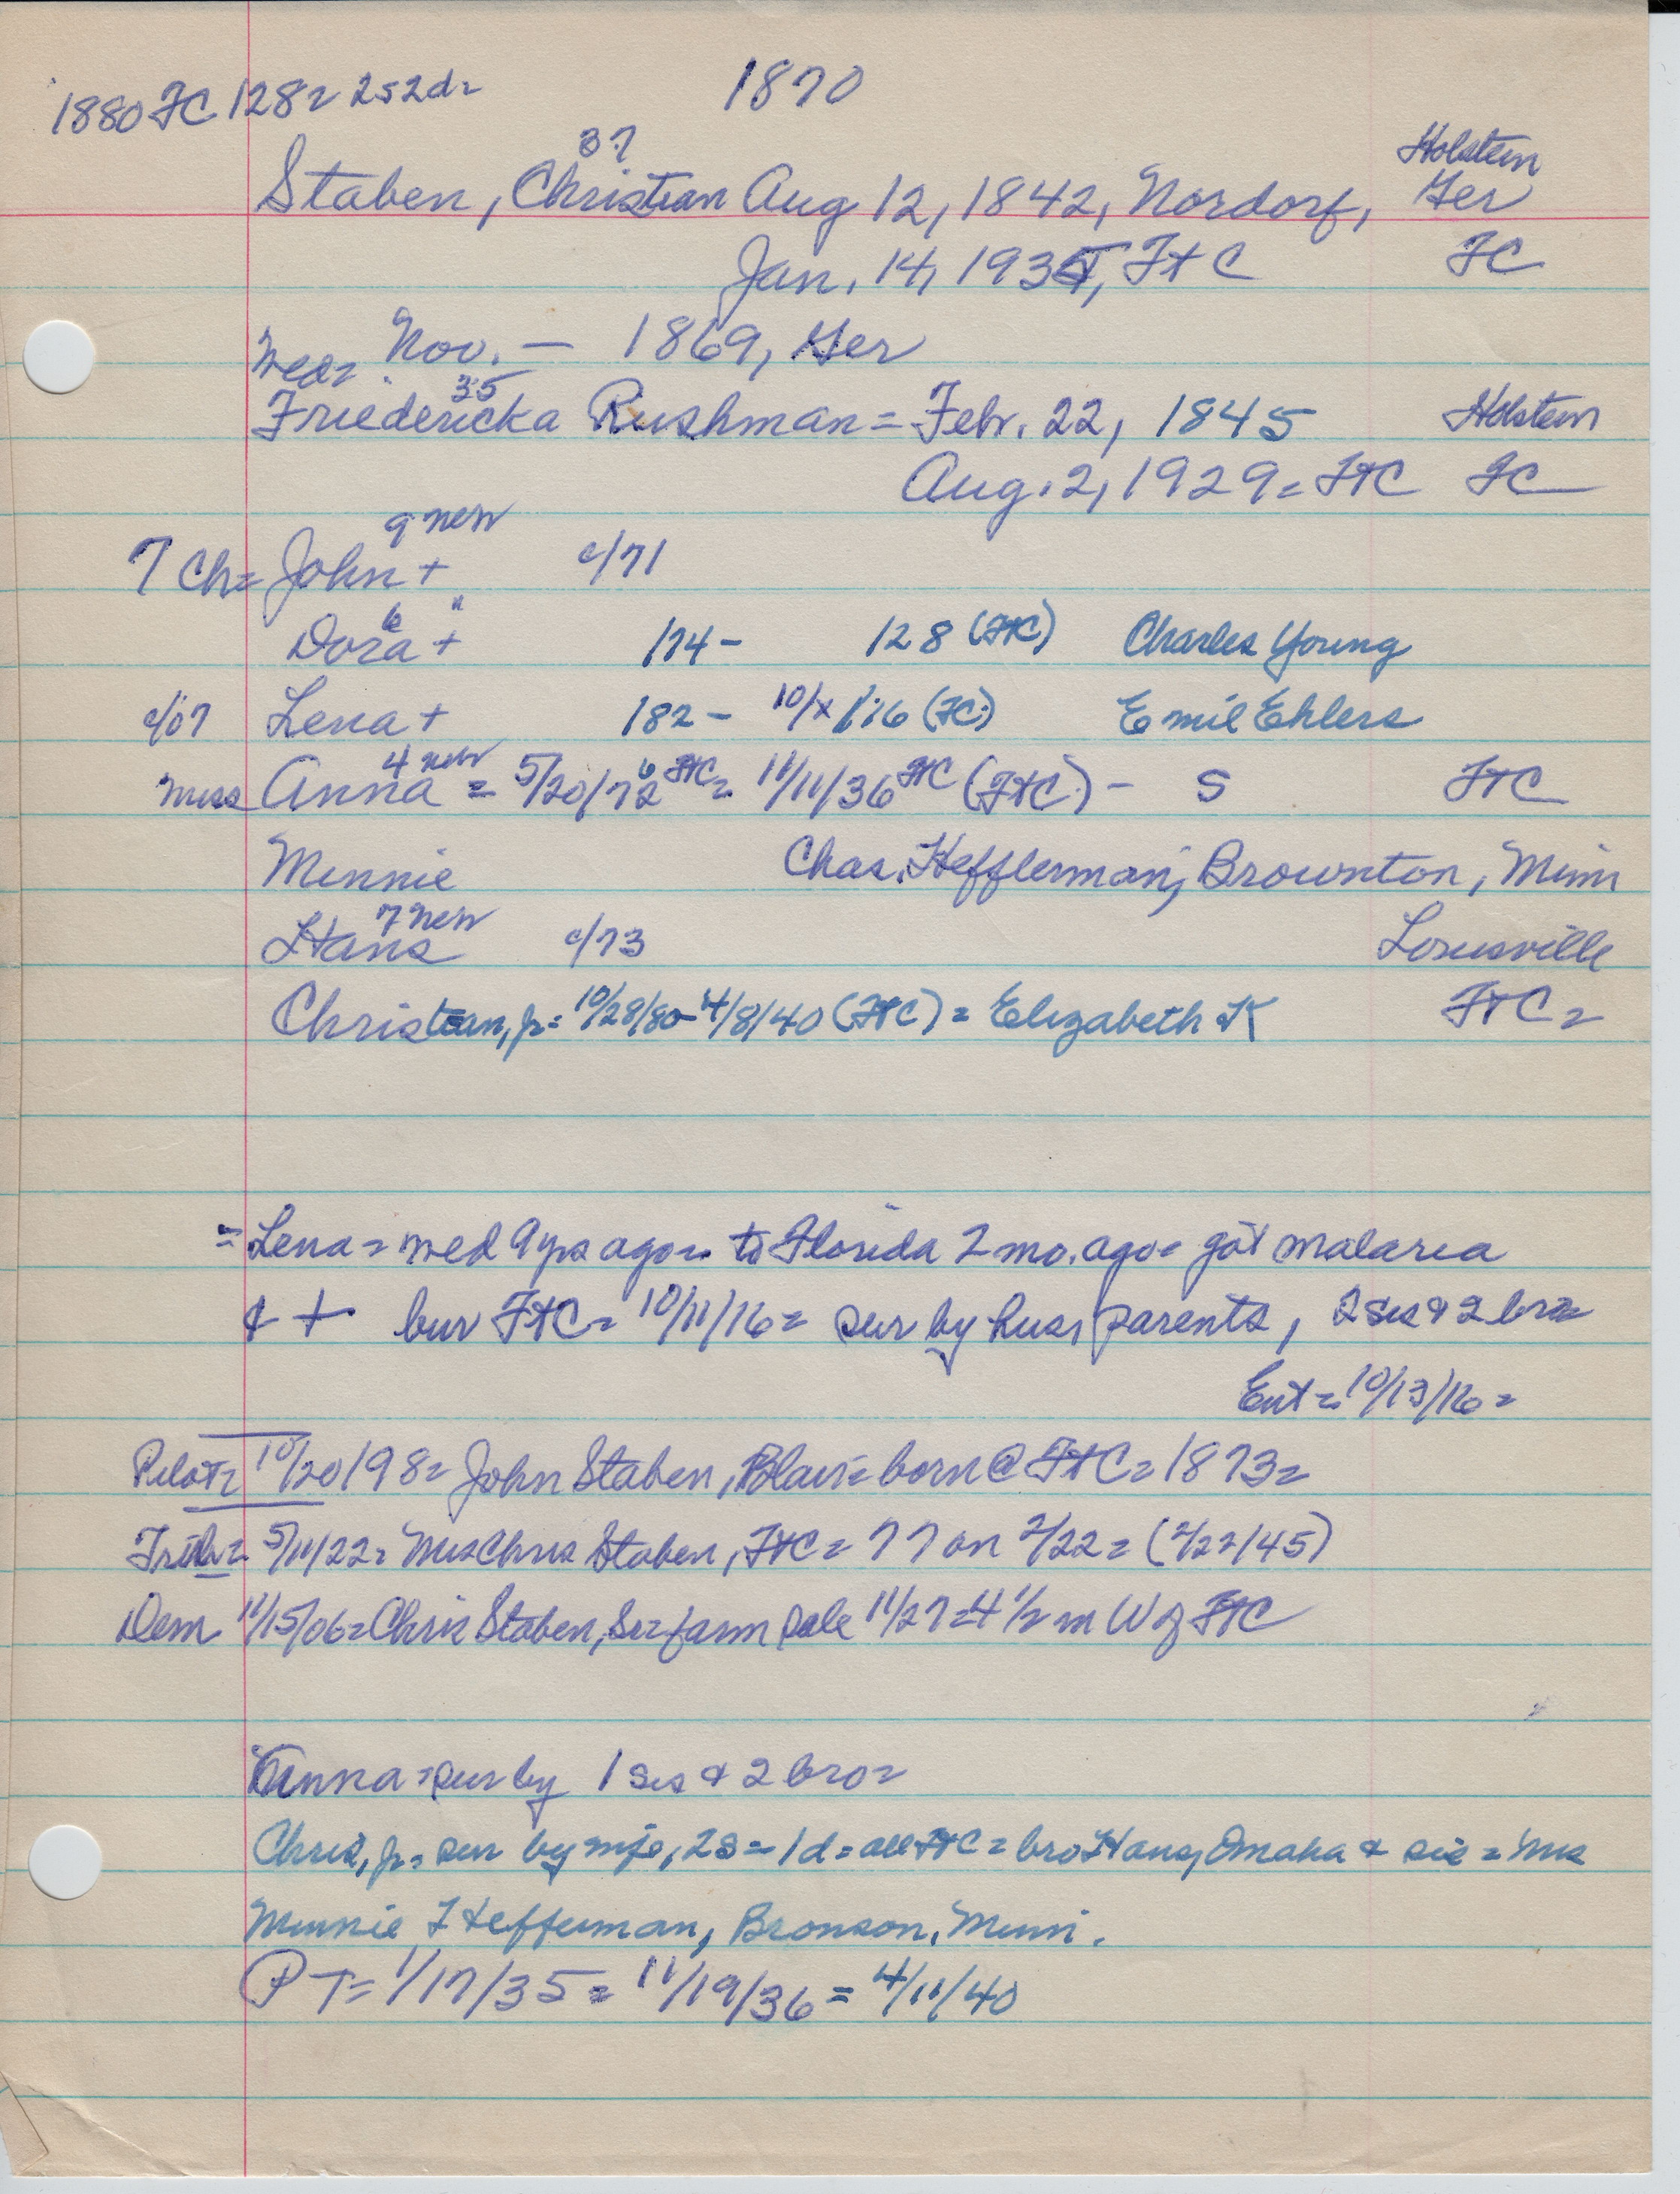 1880 FC 128= 252d=
1870
37
Holstein
Staben, Christian Aug 12, 1842, Nordorf, Ger
Jan. 14, 1935, FtC FC
Wed= Nov. — 1869, Ger
35
Friedericka Rushman = Febr. 22, 1845 Holstein
Aug. 2, 1929= FtC FC
9 new
7 Ch= John + c/71
6 "
Dora + /74 - /28 (FtC) Charles Young
c/07 Lena + /82 - 10/x/16 (FC) Emil Ehlers
4 new
Miss Anna = 5/20/76 FtC= 11/11/36 FtC (FtC) - S FtC
Minnie Chas. Hefflerman, Brownton, Minn
7 new
Hans c/73 Louisville
Christian, Jr= 10/28/80- 4/8/40 (FtC) = Elizabeth K FtC=
= Lena = wed 9 yrs ago= to Florida 2 mo. ago= got malaria
& + bur FtC= 10/11/16= sur by hus, parents, 2 sis & 2 bro=
Ent= 10/13/16=
Pilot= 10/20/98= John Staben, Blair= born @ FtC= 1873=
Trib= 5/11/22= Mrs Chris Staben, FtC= 77 on 2/22= (2/22/45)
Dem 11/15/06= Chris Staben, Sr= farm sale 11/27= 4 1/2 m W of FtC
Anna = sur by 1 sis & 2 bro=
Chris, Jr= sur by wife, 2s= 1d= all FtC= bro Hans, Omaha & sis = Mrs
Minnie Hefferman, Bronson, Minn.
PT= 1/17/35= 11/19/36= 4/11/40